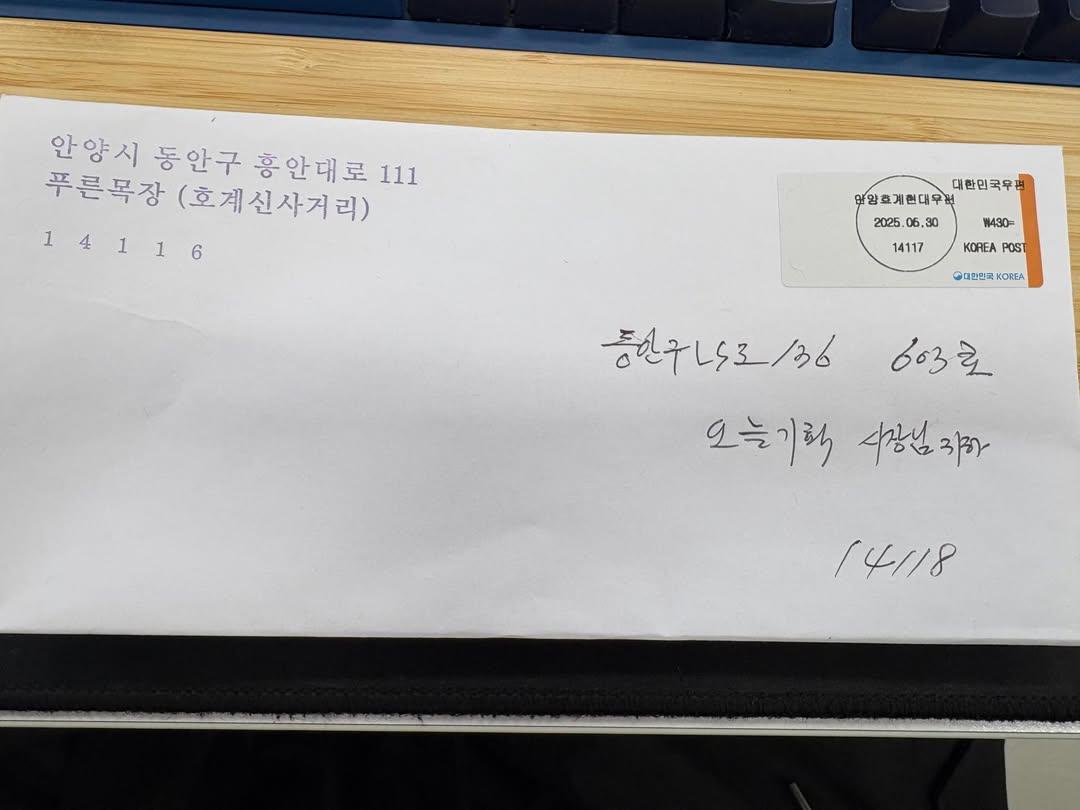 안양시 동안구 흥안대로 111
푸른목장 (호계신사거리)
1 4 1 1 6
대한민국우편
안양호계현대우편
2025.06.30
₩430=
14117
KOREA POST
대한민국 KOREA
동안구 LS로 136 603호
오늘기획 사장님 귀하
14118